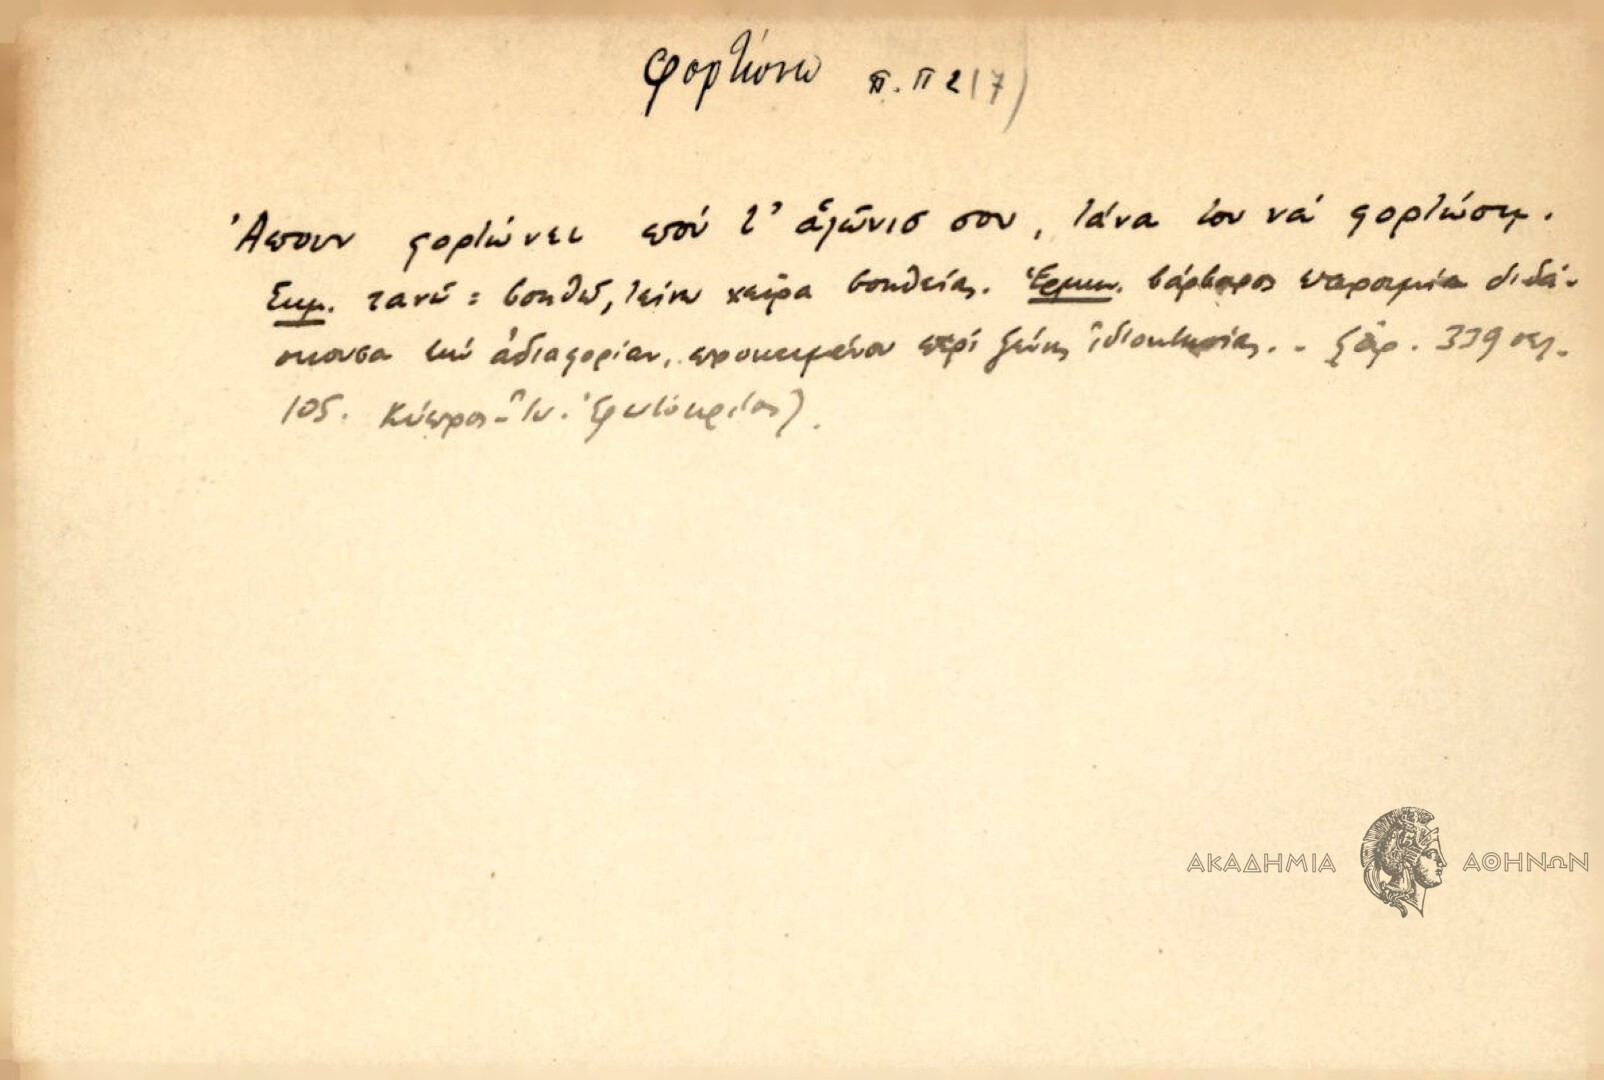 φορτώνω π. Π 2 (7)
Ἄπουν φορτώνει πού τ' ἁλῶνισ σου, τάνα του νά φορτώσῃ.
Σημ. τανῶ = βοηθῶ, τείνω χεῖρα βοηθείας. Ἑρμην. βάρβαρος παροιμία διδά-
σκουσα τήν ἀδιαφορίαν, προκειμένου περί ξένης ἰδιοκτησίας. - ἀρ. 339 σελ.
105. Κύπρος - Ἰν. Ἐρωτόκριτος).
ΑΚΑΔΗΜΙΑ ΑΘΗΝΩΝ